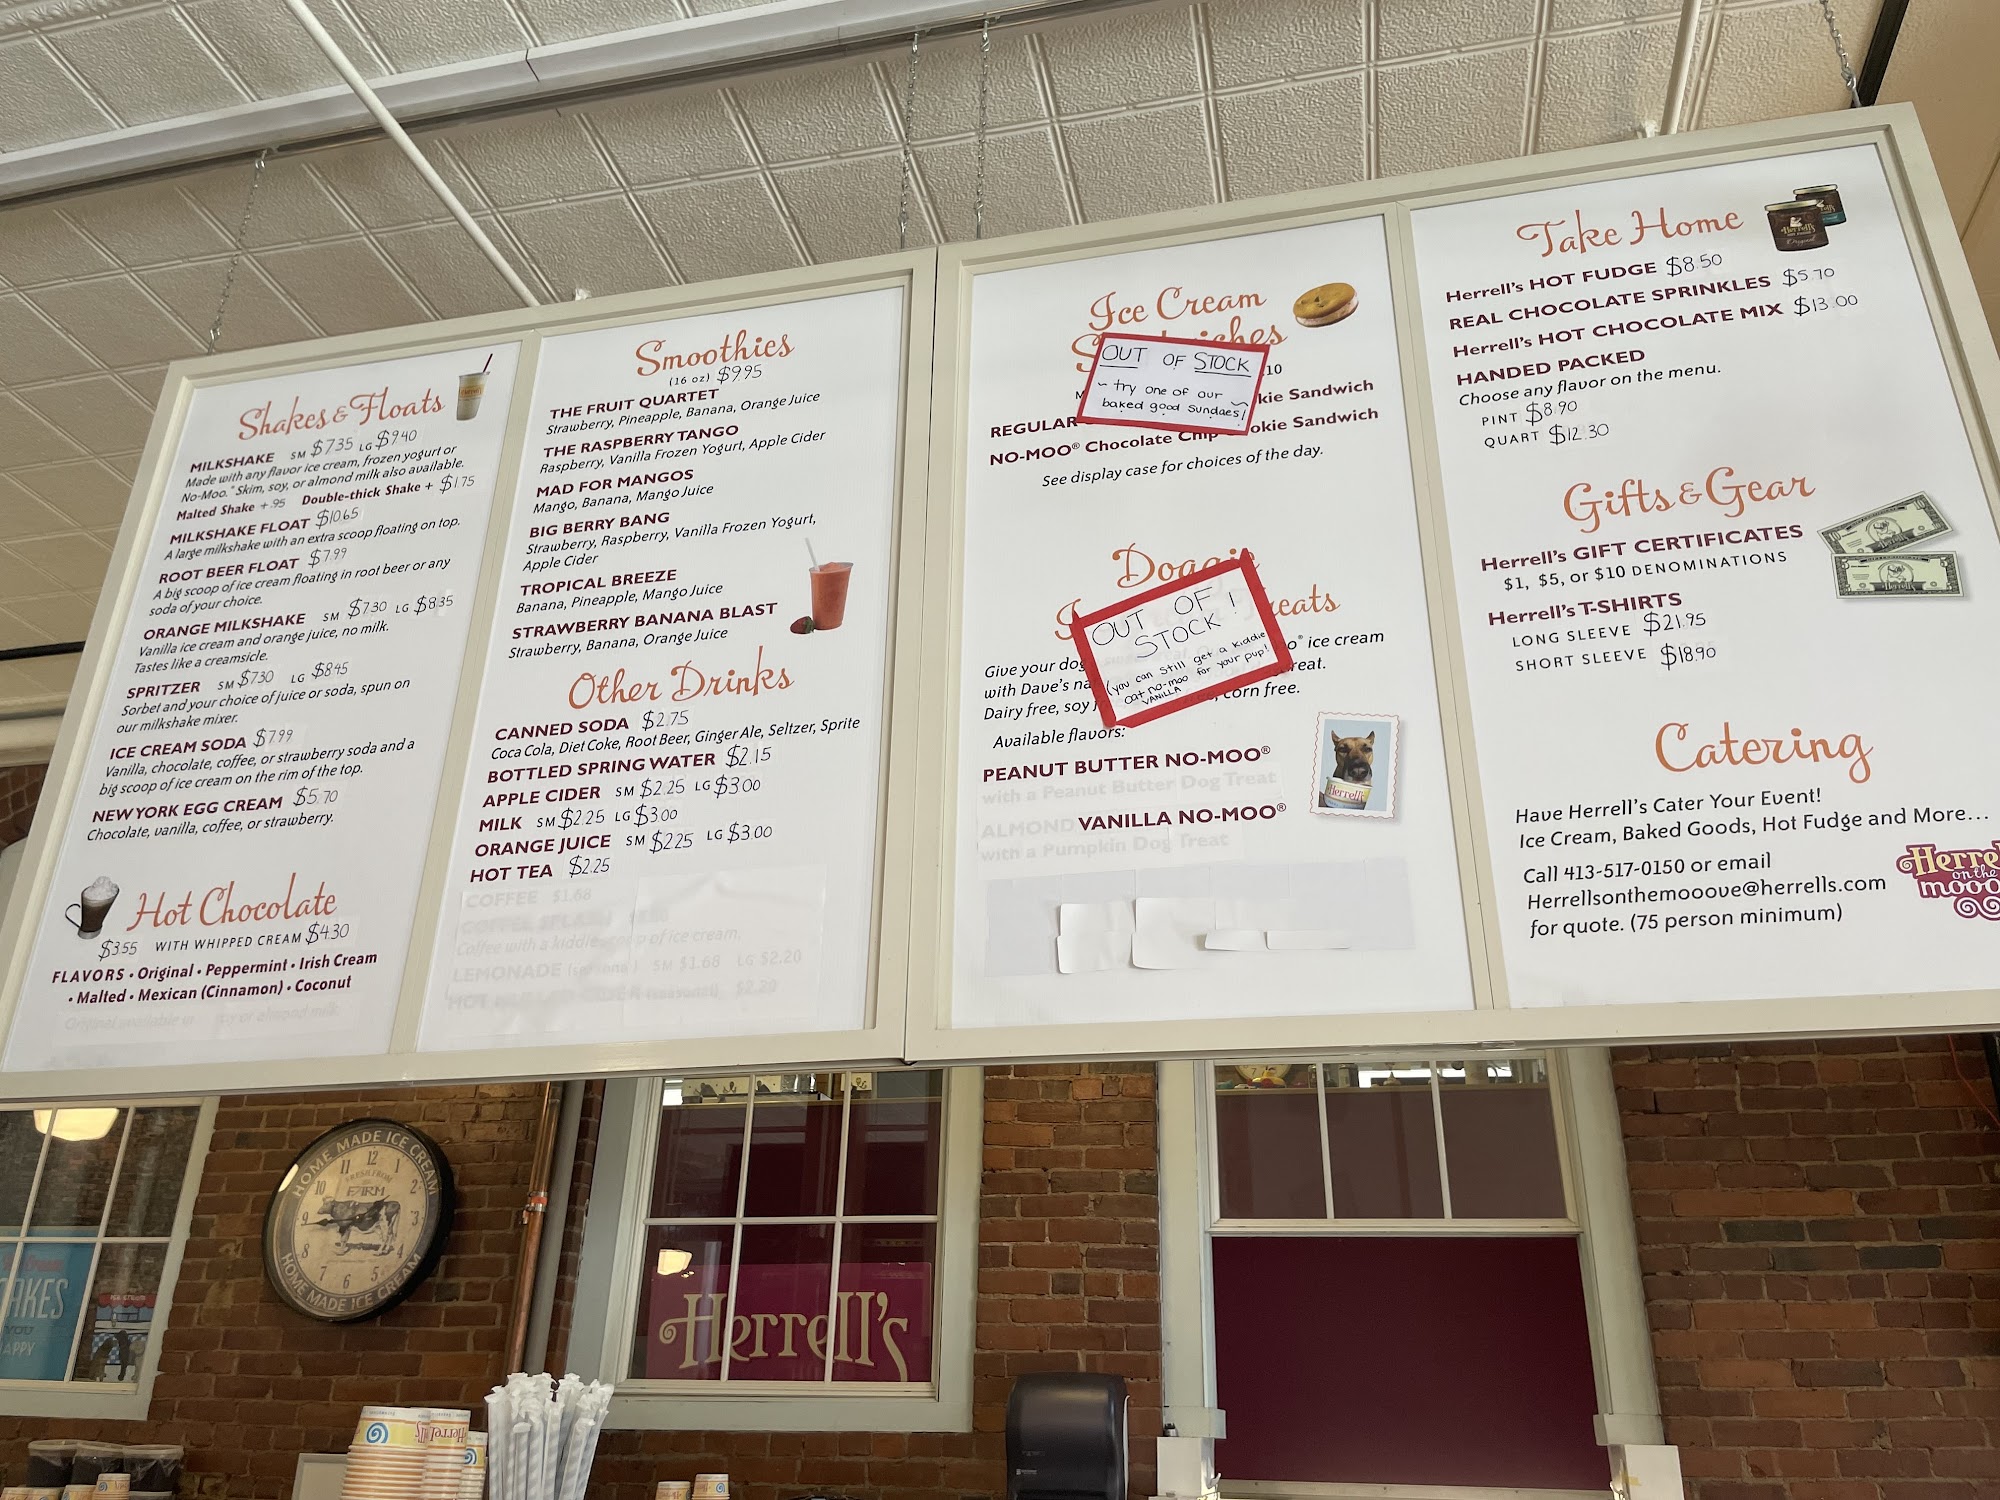 Shakes & Floats
MILKSHAKE SM $7.35 LG $9.40
Made with any flavor ice cream, frozen yogurt or
No-Moo.® Skim, soy, or almond milk also available.
Malted Shake + .95 Double-thick Shake + $1.75
MILKSHAKE FLOAT $10.65
A large milkshake with an extra scoop floating on top.
ROOT BEER FLOAT $7.99
A big scoop of ice cream floating in root beer or any
soda of your choice.
ORANGE MILKSHAKE SM $7.30 LG $8.35
Vanilla ice cream and orange juice, no milk.
Tastes like a creamsicle.
SPRITZER SM $7.30 LG $8.45
Sorbet and your choice of juice or soda, spun on
our milkshake mixer.
ICE CREAM SODA $7.99
Vanilla, chocolate, coffee, or strawberry soda and a
big scoop of ice cream on the rim of the top.
NEW YORK EGG CREAM $5.70
Chocolate, vanilla, coffee, or strawberry.
Hot Chocolate
$3.55 WITH WHIPPED CREAM $4.30
FLAVORS • Original • Peppermint • Irish Cream
• Malted • Mexican (Cinnamon) • Coconut
Original available soy or almond milk.
Smoothies
(16 oz) $9.95
THE FRUIT QUARTET
Strawberry, Pineapple, Banana, Orange Juice
THE RASPBERRY TANGO
Raspberry, Vanilla Frozen Yogurt, Apple Cider
MAD FOR MANGOS
Mango, Banana, Mango Juice
BIG BERRY BANG
Strawberry, Raspberry, Vanilla Frozen Yogurt,
Apple Cider
TROPICAL BREEZE
Banana, Pineapple, Mango Juice
STRAWBERRY BANANA BLAST
Strawberry, Banana, Orange Juice
Other Drinks
CANNED SODA $2.75
Coca Cola, Diet Coke, Root Beer, Ginger Ale, Seltzer, Sprite
BOTTLED SPRING WATER $2.15
APPLE CIDER SM $2.25 LG $3.00
MILK SM $2.25 LG $3.00
ORANGE JUICE SM $2.25 LG $3.00
HOT TEA $2.25
COFFEE $1.68
COFFEE SPLASH
Coffee with a kiddie scoop of ice cream.
LEMONADE (seasonal) SM $1.68 LG $2.20
HOT MULLED CIDER (seasonal) $2.20
Ice Cream
Sandwiches
OUT OF STOCK
~ try one of our ~
baked good sundaes!
.10
kie Sandwich
REGULAR
okie Sandwich
NO-MOO® Chocolate Chip
See display case for choices of the day.
Doggie
Treats
OUT OF
STOCK!
(you can still get a kiddie
oat no-moo for your pup!
VANILLA
Give your dog
o® ice cream
with Dave's na
reat.
Dairy free, soy f
corn free.
Available flavors:
PEANUT BUTTER NO-MOO®
with a Peanut Butter Dog Treat
ALMOND VANILLA NO-MOO®
with a Pumpkin Dog Treat
Herrell's
Take Home
Herrell's HOT FUDGE $8.50
REAL CHOCOLATE SPRINKLES $5.70
Herrell's HOT CHOCOLATE MIX $13.00
HANDED PACKED
Choose any flavor on the menu.
PINT $8.90
QUART $12.30
Herrell's
Gifts & Gear
Herrell's GIFT CERTIFICATES
$1, $5, or $10 DENOMINATIONS
Herrell's T-SHIRTS
LONG SLEEVE $21.95
SHORT SLEEVE $18.90
Catering
Have Herrell's Cater Your Event!
Ice Cream, Baked Goods, Hot Fudge and More...
Call 413-517-0150 or email
Herrellsonthemooove@herrells.com
for quote. (75 person minimum)
Herre
on the
mooo
HOME MADE ICE CREAM
FRESH FROM
FARM
12 1 2 3 4 5 6 7 8 9 10 11
HOME MADE ICE CREAM
Herrell's
AKES
YOU
APPY
Herrel